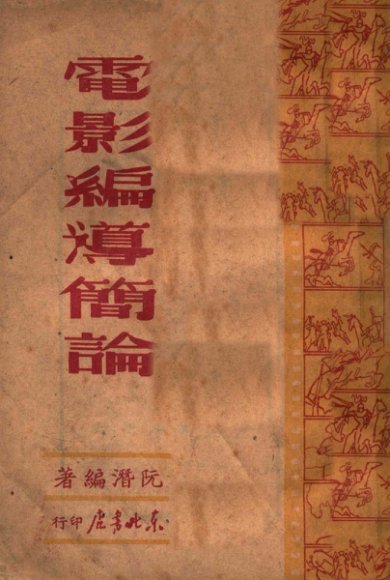 電影編導簡論
阮潛編著
东北书店印行